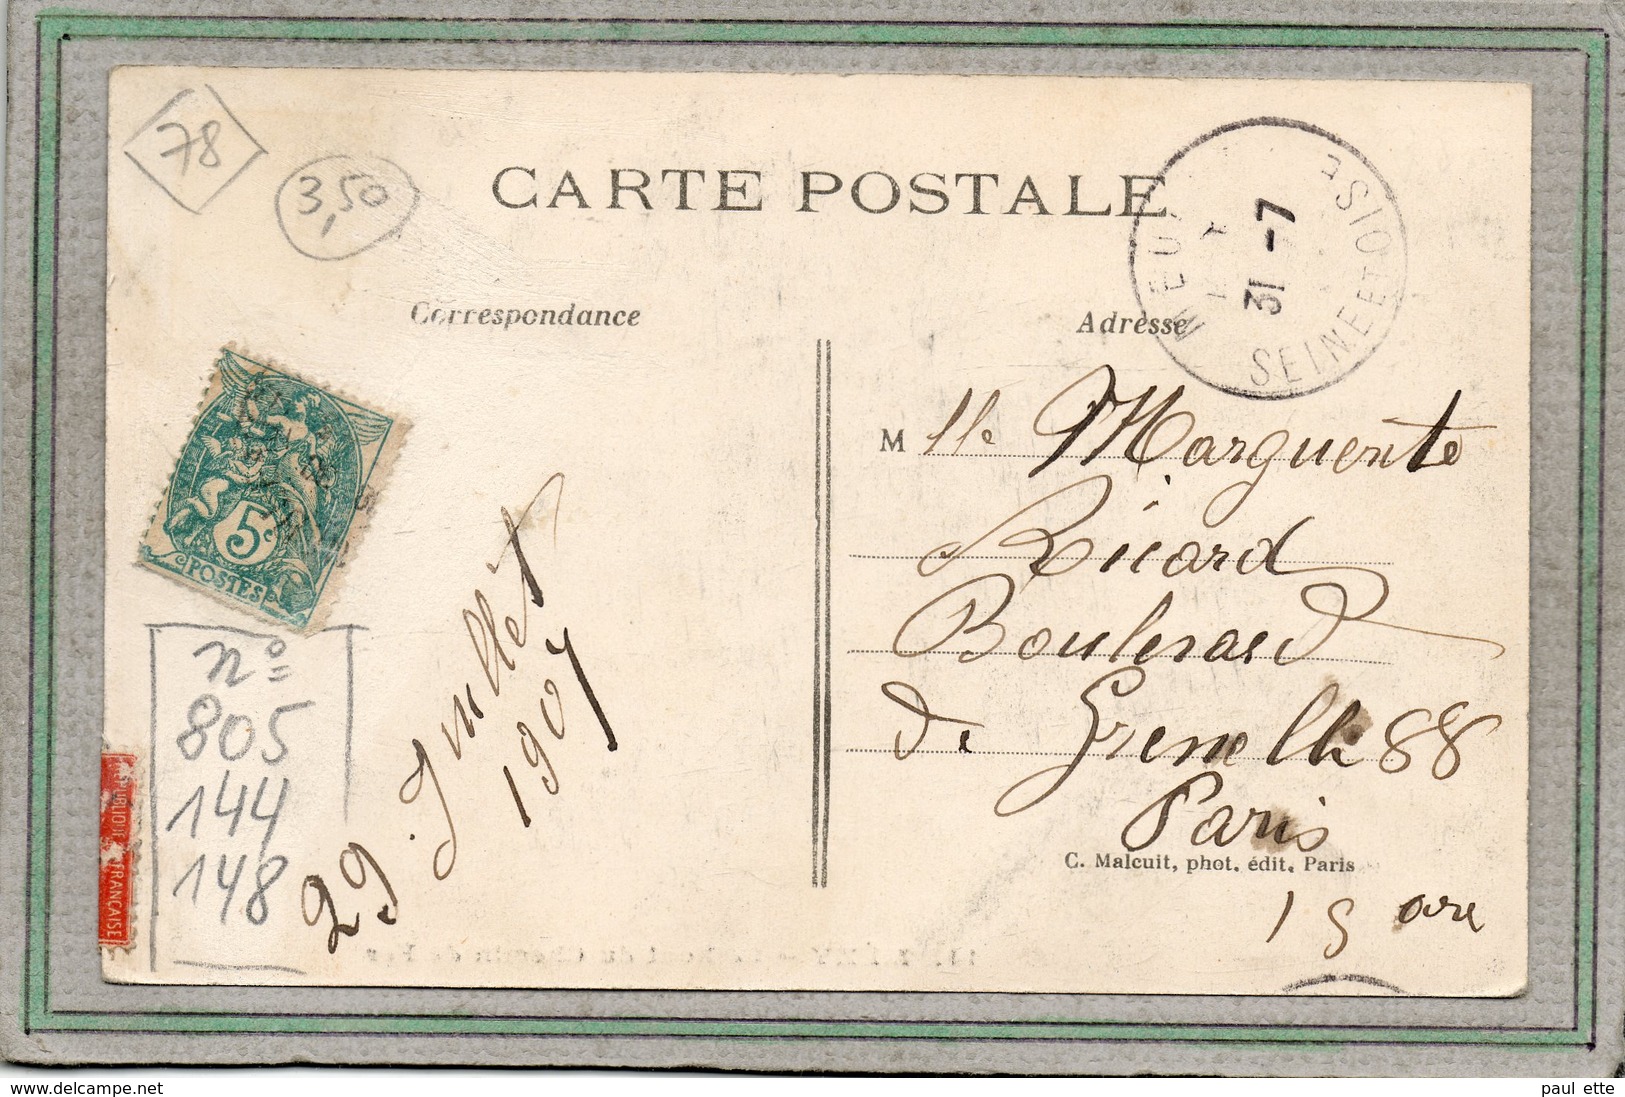 78
3,50
CARTE POSTALE
31 -7
SEINE ET OISE
Correspondance
Adresse
5c
POSTES
M lle Marguerite
Ricard
Boulevard
de Grenelle 88
Paris
C. Malcuit, phot. édit. Paris
15 ore
29 Juillet
1907
nº
805
144
148
RÉPUBLIQUE FRANÇAISE
www.delcampe.net
paul ette